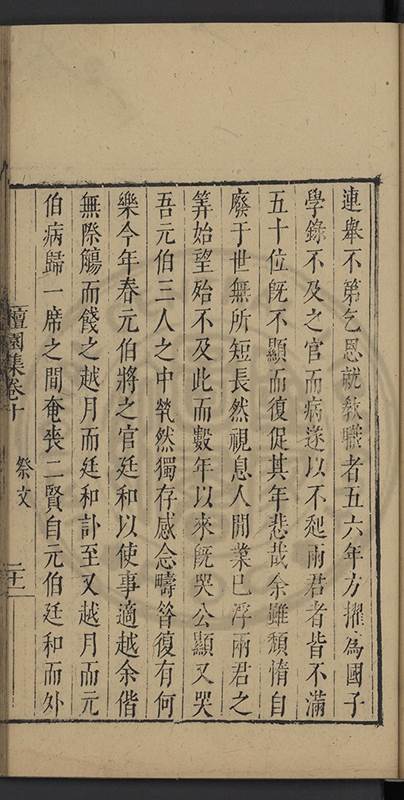 連舉不第乞恩就教職者五六年方擢爲國子
學錄不及之官而病遂以不起兩君者皆不滿
五十位旣不顯而復促其年悲哉余雖頽惰自
廢于世無所短長然視息人間業已浮兩君之
筭始望殆不及此而數年以來旣哭公顯又哭
吾元伯三人之中煢然獨存感念疇昔復有何
樂今年春元伯將之官廷和以使事適越余偕
無際觴而餞之越月而廷和訃至又越月而元
伯病歸一席之間奄喪二賢自元伯廷和而外
檀園集卷十
祭文
二十一